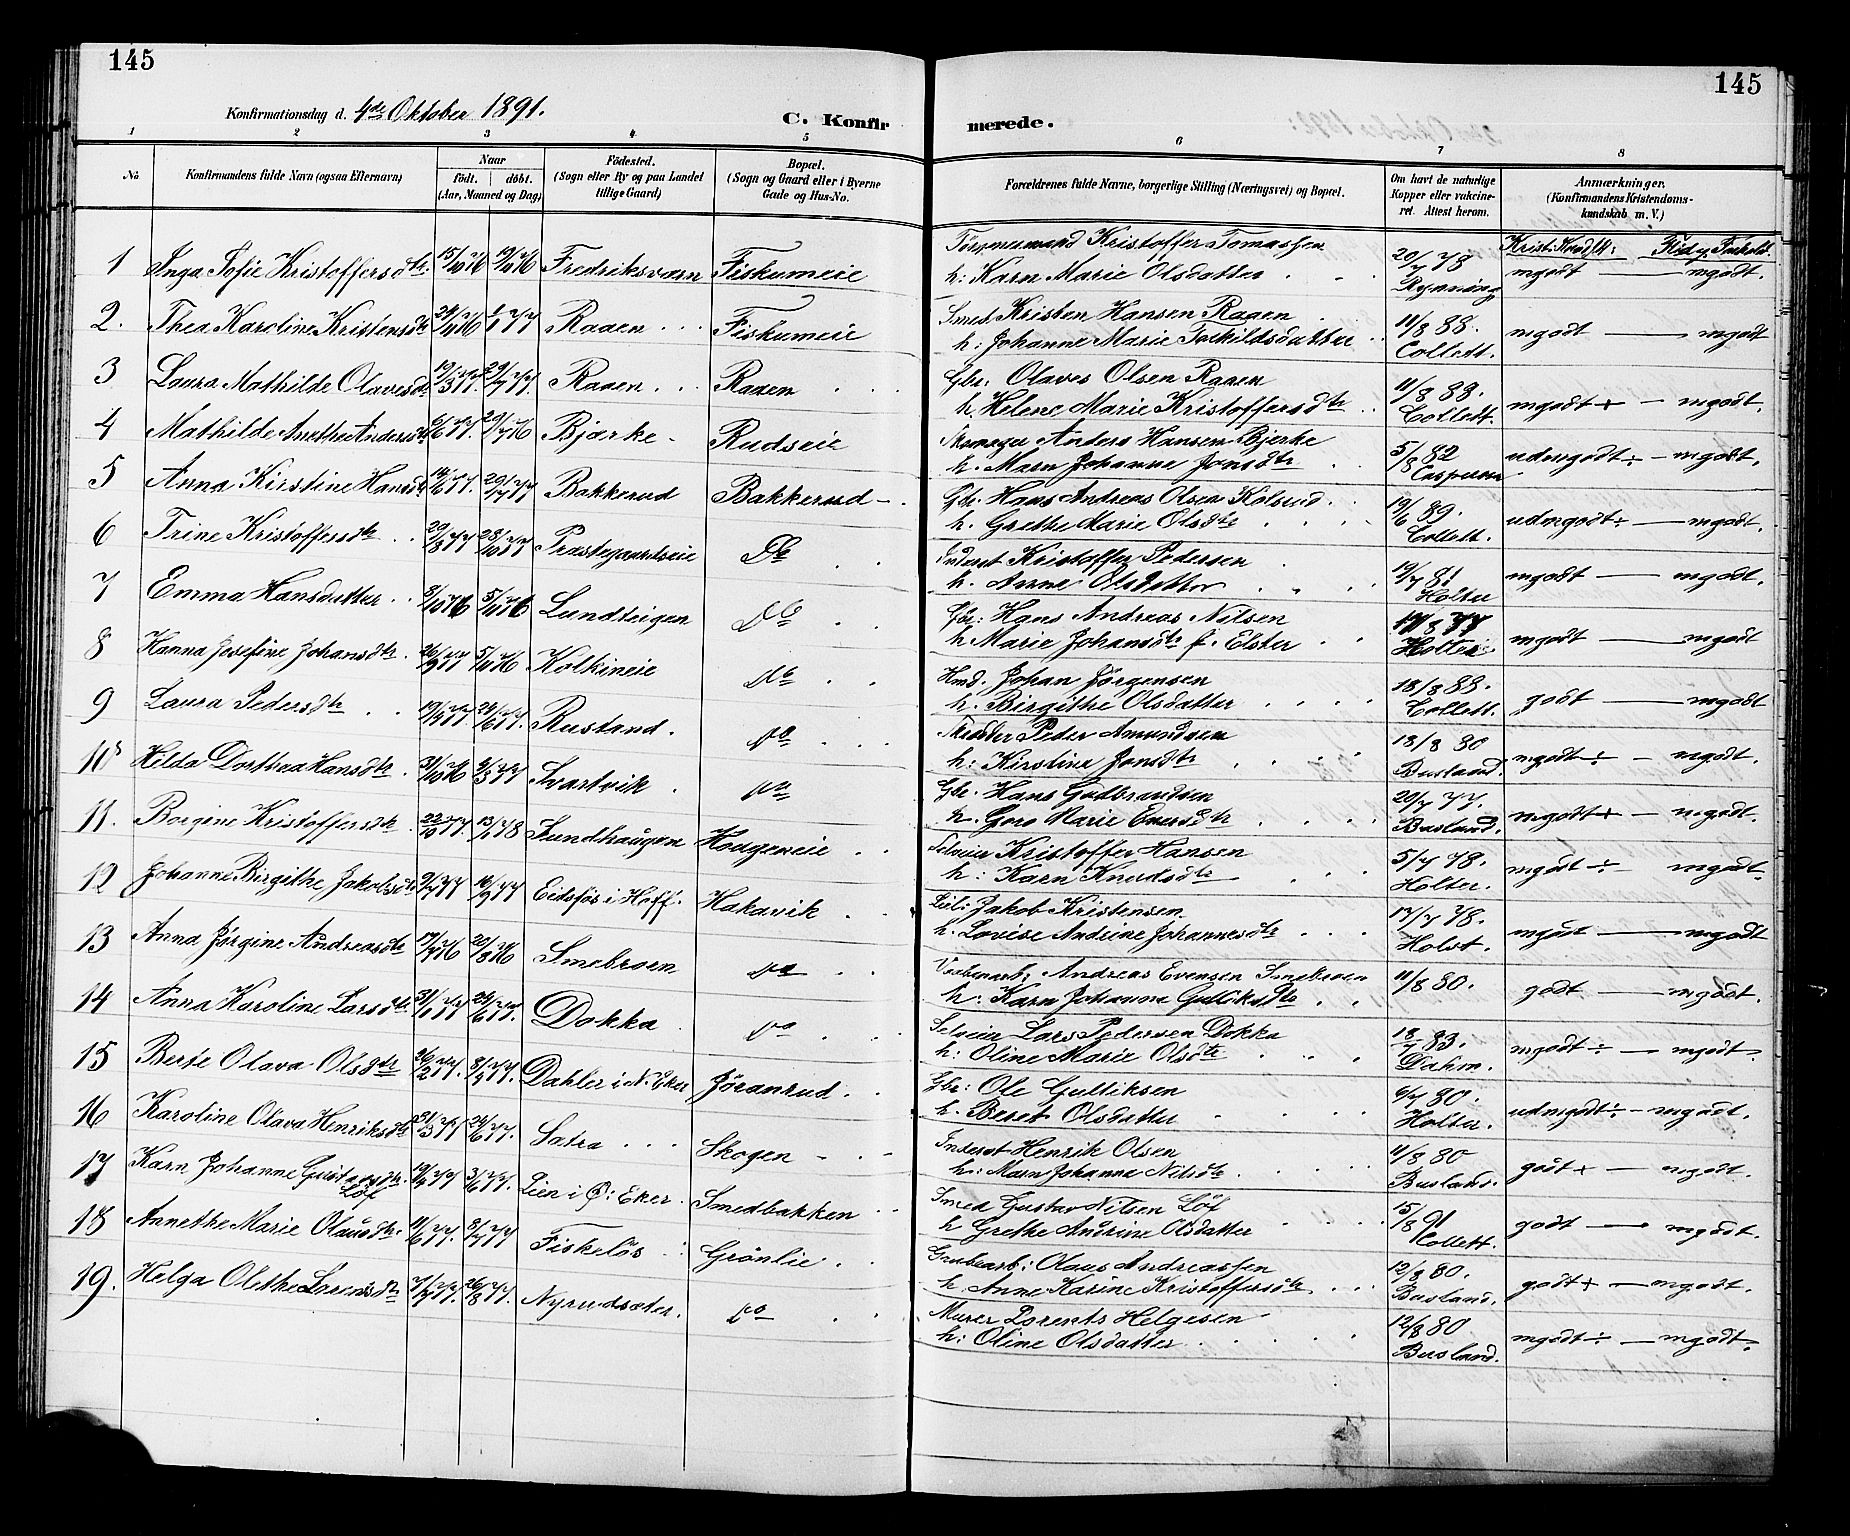 145
145
Konfirmationsdag d. 4de Oktober 1891.
C. Konfirmerede.
1 2 3 4 5 6 7 8
No
Konfirmandens fulde Navn (ogsaa Efternavn)
Naar
födt. döbt.
(Aar, Maaned og Dag)
Födested.
(Sogn eller By og paa Landet tillige Gaard)
Bopæl.
(Sogn og Gaard eller i Byerne Gade og Hus-No.
Forældrenes fulde Navne, borgerlige Stilling (Næringsvei) og Bopæl.
Om havt de naturlige Kopper eller vakcineret. Attest herom.
Anmærkninger.
(Konfirmandens Kristendomskundskab m. V.)
1 Inga Sofie Kristoffersdtr. 15/10 76 19/11 76 Fredriksværn Fiskumeie
Tömmermand Kristoffer Tomassen
h: Karn Marie Olsdatter
20/7 78 Rynning mgodt — mgodt.
2. Thea Karoline Kristensdtr 1/1 77 Raaen Fiskumeie
Smed Kristen Hansen Raaen
h: Johanne Marie Torkildsdatter
11/8 88. Collett. mgodt — mgodt
3 Laura Mathilde Olavesdtr 19/3 77. 29/7 77. Raaen Raaen
Gbr: Olaves Olsen Raaen
h. Helene Marie Kristoffersdtr
11/8 88. Collett. mgodt + — mgodt.
4 Mathilde Anethe Andersdtr Bjærke Rudseie
Anders Hansen Bjerke
h. Marn Johanne Jonsdtr
5/8 82 Caspersen udmgodt ÷ — mgodt.
5 Anna Kirstine Hansdtr 14/6 77. 29/7 77 Bakkerud Bakkerud
Gbr. Hans Andreas Olsen Kolsrud
h. Grethe Marie Olsdtr
19/6 89. Collett. udmgodt ÷ — mgodt.
6 Trine Kristoffersdtr 29/8 77 28/10 77 Præstegaardseie Do
Inderst Kristoffer Pedersen
h. Anne Olsdatter
19/7 81 Holter mgodt — mgodt.
7 Emma Hansdatter 8/10 76 5/10 76 Lundteigen Do
Gbr: Hans Andreas Nilsen
h Marie Johansdtr f. Elster
17/8 77 Holter mgodt — mgodt
8 Hanna Josefine Johansdtr. 26/9 77 5/10 76 Kolkineie Do
Hmd. Johan Jörgensen
h. Birgithe Olsdatter
18/8 88. Collett. godt — mgodt
9 Laura Pedersdtr 19/4 77 24/6 77. Rustand. Do
Peder Amundsen
h: Kirstine Jonsdtr
18/8 80 Busland. mgodt ÷ — mgodt.
10 Hilda Dorthea Hansdtr. 31/10 76 9/3 77 Svartvik Do
Gbr. Hans Gudbrandsen
h. Goro Marie Eversdtr
20/7 77. Busland. mgodt + — mgodt.
11. Borgine Kristoffersdtr. 22/10 77. 13/1 78 Lundhaugen Hougeneie
Selveier Kristoffer Hansen
h: Karn Knudsdtr
5/7 78. Holter. mgodt ÷ — mgodt.
12 Johanne Birgithe Jakobsdtr 9/7 77 16/9 77 Eidsfos i Hoff. Hakavik
Jakob Kristensen.
h. Lovise Andrine Johannesdtr
17/7 78. Holst. mgodt — mgodt
13 Anna Jörgine Andreasdtr 17/7 76 20/8 76 Smebroen Do
Andreas Evensen Smebroen
h: Karn Johanna Gulliksdtr
11/8 80. godt — mgodt.
14 Anna Karoline Larsdtr. 31/1 77 24/6 77. Dokka Do
Selveier Lars Pedersen Dokka
h: Oline Marie Olsdtr
18/7 83. Dahm. mgodt ÷ — mgodt.
15 Berte Olava Olsdtr 26/2 77. 8/4 77. Dahler i N. Eker Jöranrud.
Gbr: Ole Gulliksen
h. Beret Olsdatter
6/7 80. Holter. udmgodt ÷ — mgodt.
16 Karoline Olava Henriksdtr 21/3 77 24/6 77. Satra Skogen
Inderst Henrik Olsen
h: Marn Johanna Nilsdtr
11/8 80 Busland. godt + — mgodt.
17 Karn Johanne Gustavsdtr. Löf 19/4 77 3/6 77. Lien i Ö: Eker. Smedbakken
Smed Gustav Nilsen Löf
h Grethe Andrine Olsdatter
15/8 91 Collett. godt — mgodt.
18 Annethe Marie Olausdtr. 11/6 77. 8/7 77 Fiskelös Grönlie.
Grubearb: Olaus Andreassen
h. Anne Karine Kristoffersdtr.
12/8 80. Busland. godt + — mgodt.
19. Helga Olethe Lorensdtr 7/7 77. 26/8 77. Nyrudsæter. Do
Murer Lorents Helgesen
h: Oline Olsdatter
12/8 80 Busland. mgodt ÷ — mgodt.